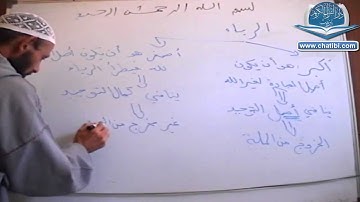 بسم الله الرحمن الرحيم
الرياء
أكبر هو أن يكون
أصل العبادة لغير الله
ينافي أصل التوحيد
الخروج من الملة
أصغر هو أن يكون أصل
لله فيطرأ الرياء
ينافي كمال التوحيد
غير مخرج من
www.chatibi.com